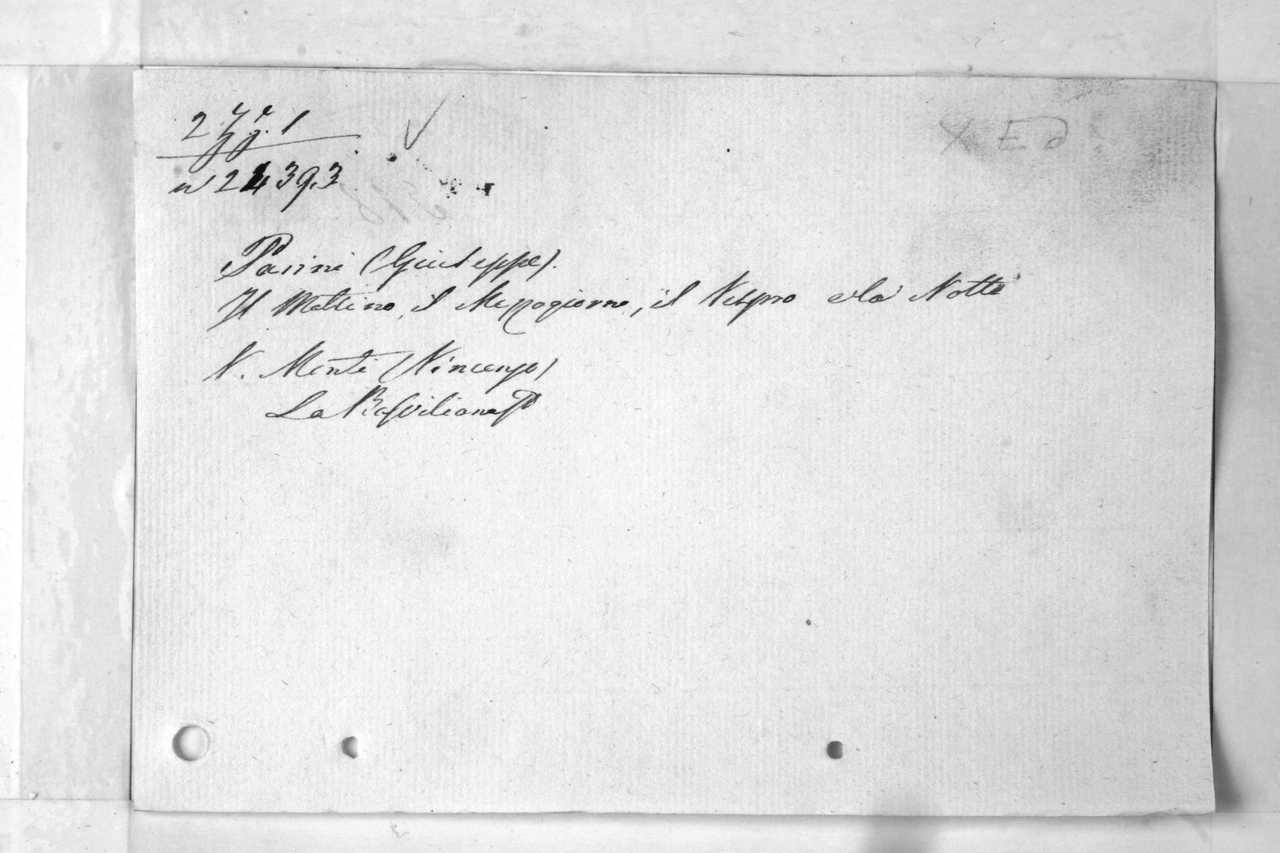 n 24393
Parini (Giuseppe).
Il Mattino, il Mezzogiorno, il Vespro e la Notte
V. Monti (Vincenzo)
La Basvilliana